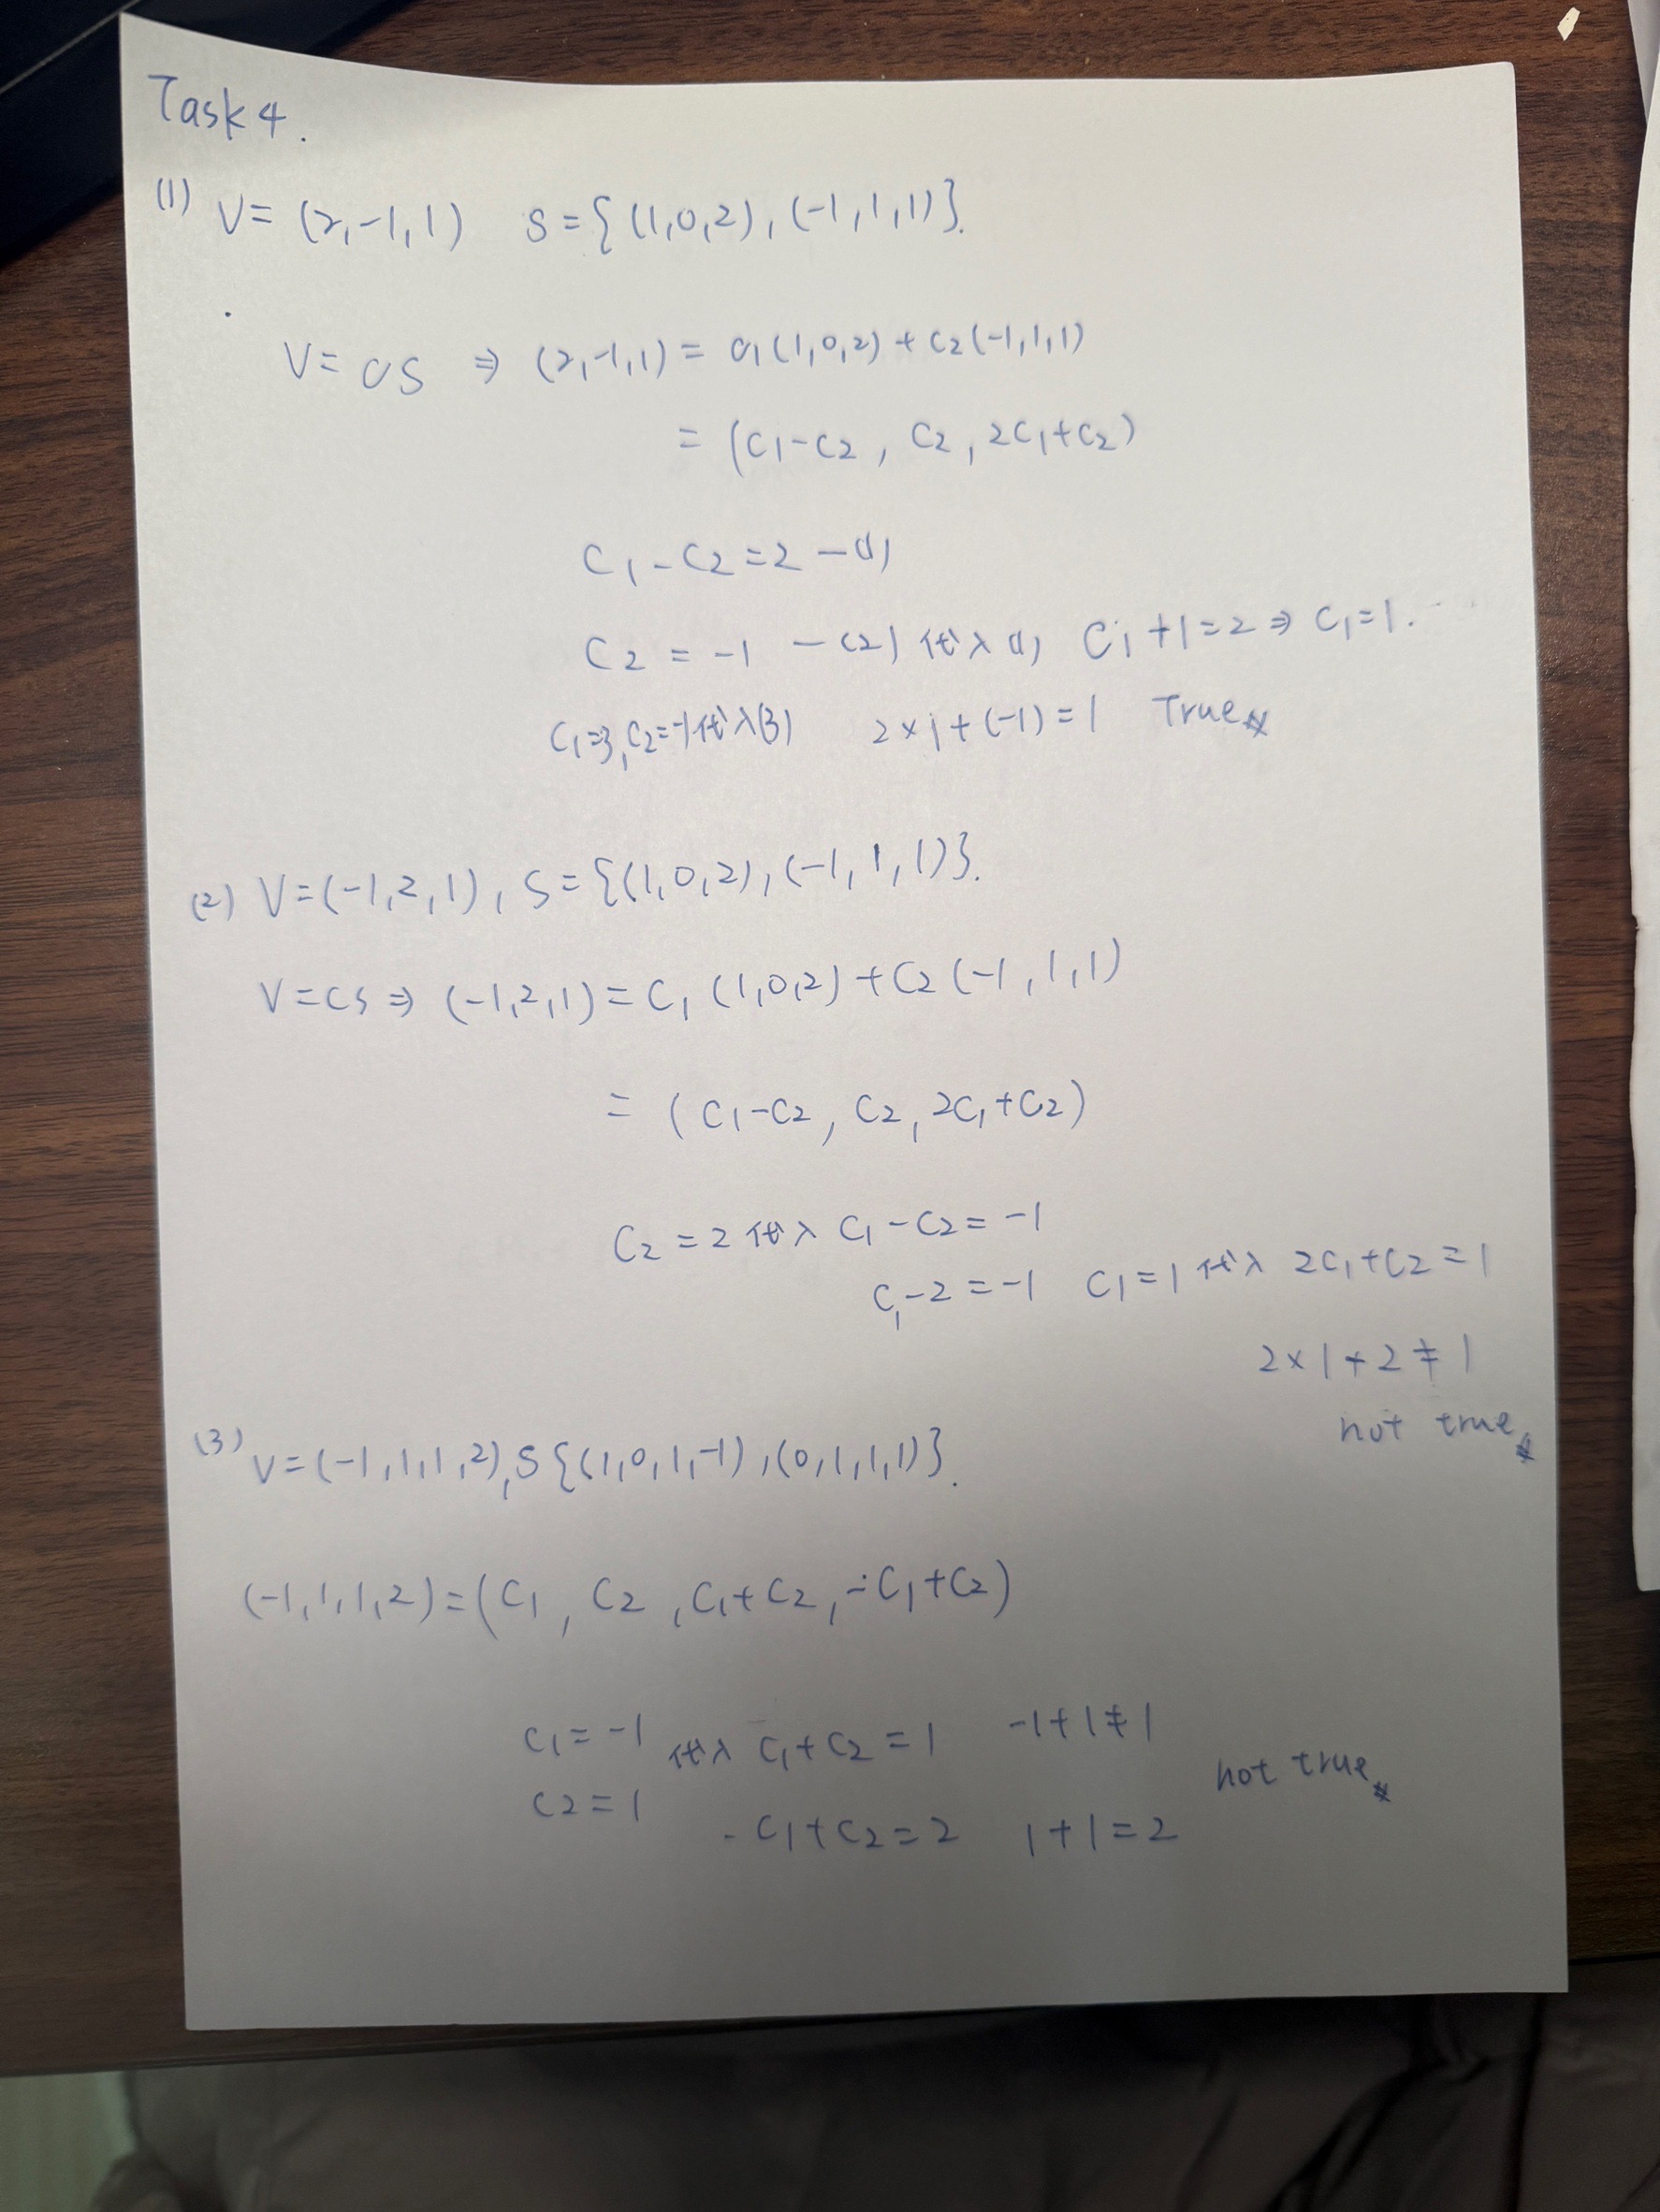 Task 4.
(1) V=(2,-1,1) S={(1,0,2),(-1,1,1)}.
V=CS ⇒ (2,-1,1) = C1(1,0,2)+C2(-1,1,1)
= (C1-C2, C2, 2C1+C2)
C1-C2=2 -(1)
C2=-1 -(2) 代入(1) C1+1=2⇒C1=1.
C1=3,C2=-1代入(3) 2×1+(-1)=1 True
(2) V=(-1,2,1), S={(1,0,2),(-1,1,1)}.
V=CS⇒(-1,2,1)=C1(1,0,2)+C2(-1,1,1)
= (C1-C2, C2, 2C1+C2)
C2=2代入 C1-C2=-1
C1-2=-1 C1=1代入 2C1+C2=1
2×1+2≠1
not true
(3) V=(-1,1,1,2),S{(1,0,1,-1),(0,1,1,1)}.
(-1,1,1,2)=(C1, C2, C1+C2, -C1+C2)
C1=-1 代入 C1+C2=1 -1+1≠1
not true
C2=1
-C1+C2=2 1+1=2